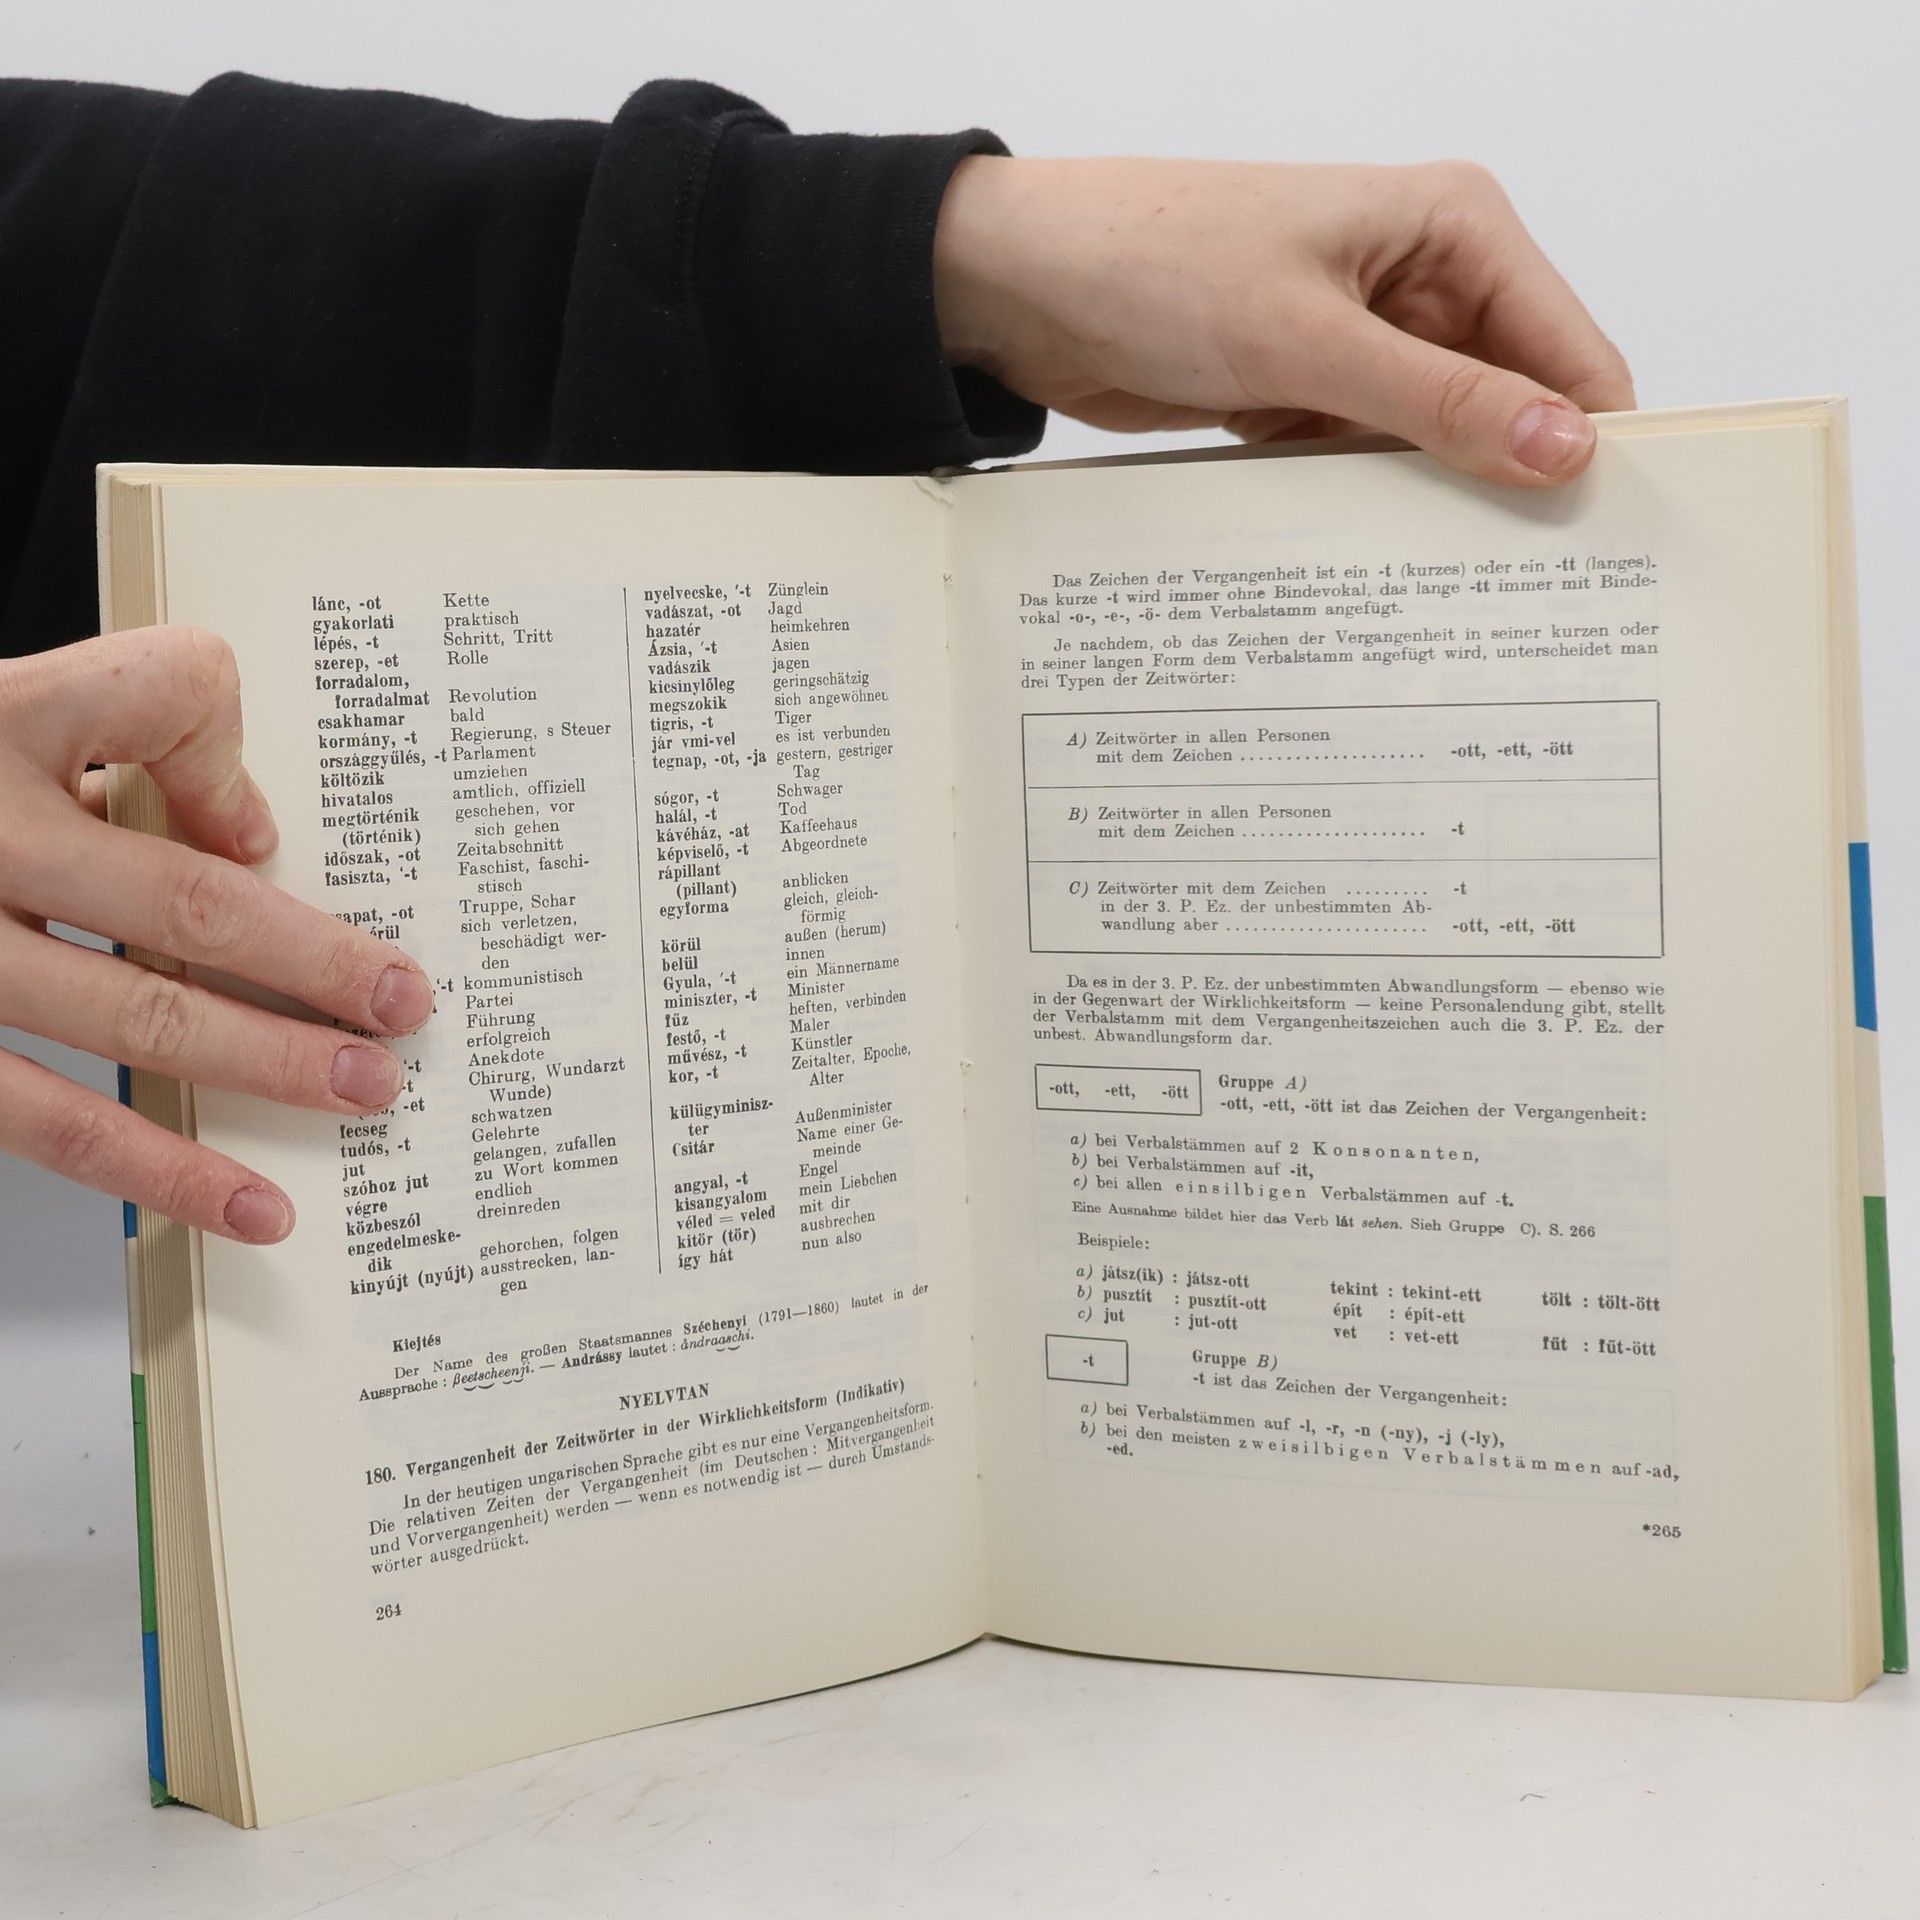 lánc, -ot Kette
gyakorlati praktisch
lépés, -t Schritt, Tritt
szerep, -et Rolle
forradalom,
forradalmat Revolution
csakhamar bald
kormány, -t Regierung, s Steuer
országgyűlés, -t Parlament
költözik umziehen
hivatalos amtlich, offiziell
megtörténik geschehen, vor
(történik) sich gehen
időszak, -ot Zeitabschnitt
fasiszta, '-t Faschist, faschi-
stisch
-ot Truppe, Schar
sich verletzen,
beschädigt wer-
den
'-t kommunistisch
Partei
Führung
erfolgreich
'-t Anekdote
-t Chirurg, Wundarzt
-et Wunde)
fecseg schwatzen
tudós, -t Gelehrte
jut gelangen, zufallen
szóhoz jut zu Wort kommen
végre endlich
közbeszól dreinreden
engedelmeske-
dik gehorchen, folgen
kinyújt (nyújt) ausstrecken, lan-
gen
nyelvecske, '-t Zünglein
vadászat, -ot Jagd
hazatér heimkehren
Ázsia, '-t Asien
vadászik jagen
kicsinylőleg geringschätzig
megszokik sich angewöhnen
tigris, -t Tiger
jár vmi-vel es ist verbunden
tegnap, -ot, -ja gestern, gestriger
Tag
sógor, -t Schwager
halál, -t Tod
kávéház, -at Kaffeehaus
képviselő, -t Abgeordnete
rápillant
(pillant) anblicken
egyforma gleich, gleich-
förmig
körül außen (herum)
belül innen
Gyula, '-t ein Männername
miniszter, -t Minister
fűz heften, verbinden
festő, -t Maler
művész, -t Künstler
kor, -t Zeitalter, Epoche,
Alter
külügyminisz-
ter Außenminister
Csitár Name einer Ge-
meinde
angyal, -t Engel
kisangyalom mein Liebchen
véled = veled mit dir
kitör (tör) ausbrechen
így hát nun also
Kiejtés
Der Name des großen Staatsmannes Széchenyi (1791—1860) lautet in der
Aussprache : ßeetscheenji. — Andrássy lautet : åndraaschi.
NYELVTAN
180. Vergangenheit der Zeitwörter in der Wirklichkeitsform (Indikativ)
In der heutigen ungarischen Sprache gibt es nur eine Vergangenheitsform.
Die relativen Zeiten der Vergangenheit (im Deutschen : Mitvergangenheit
und Vorvergangenheit) werden — wenn es notwendig ist — durch Umstands-
wörter ausgedrückt.
264
Das Zeichen der Vergangenheit ist ein -t (kurzes) oder ein -tt (langes).
Das kurze -t wird immer ohne Bindevokal, das lange -tt immer mit Binde-
vokal -o-, -e-, -ö- dem Verbalstamm angefügt.
Je nachdem, ob das Zeichen der Vergangenheit in seiner kurzen oder
in seiner langen Form dem Verbalstamm angefügt wird, unterscheidet man
drei Typen der Zeitwörter:
A) Zeitwörter in allen Personen
mit dem Zeichen .................... -ott, -ett, -ött
B) Zeitwörter in allen Personen
mit dem Zeichen .................... -t
C) Zeitwörter mit dem Zeichen ......... -t
in der 3. P. Ez. der unbestimmten Ab-
wandlung aber ...................... -ott, -ett, -ött
Da es in der 3. P. Ez. der unbestimmten Abwandlungsform — ebenso wie
in der Gegenwart der Wirklichkeitsform — keine Personalendung gibt, stellt
der Verbalstamm mit dem Vergangenheitszeichen auch die 3. P. Ez. der
unbest. Abwandlungsform dar.
-ott, -ett, -ött Gruppe A)
-ott, -ett, -ött ist das Zeichen der Vergangenheit:
a) bei Verbalstämmen auf 2 Konsonanten,
b) bei Verbalstämmen auf -it,
c) bei allen einsilbigen Verbalstämmen auf -t.
Eine Ausnahme bildet hier das Verb lát sehen. Sieh Gruppe C). S. 266
Beispiele:
a) játsz(ik) : játsz-ott tekint : tekint-ett tölt : tölt-ött
b) pusztít : pusztít-ott épít : épít-ett
c) jut : jut-ott vet : vet-ett fűt : fűt-ött
-t Gruppe B)
-t ist das Zeichen der Vergangenheit:
a) bei Verbalstämmen auf -l, -r, -n (-ny), -j (-ly),
b) bei den meisten zweisilbigen Verbalstämmen auf -ad,
-ed.
*265